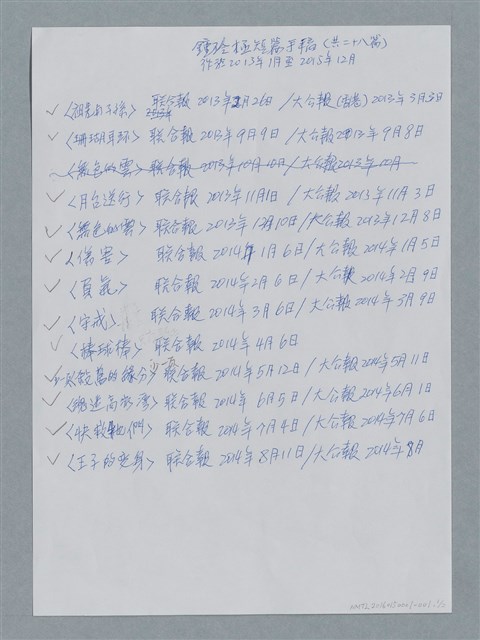 鍾玲極短篇手稿 (共二十八篇)
作於2013年1月至2015年12月
✓ 〈祖與孫〉 聯合報 2013年2月26日 /大公報(香港) 2013年3月3日
✓ 〈珊瑚耳环〉 聯合報 2013年9月9日 /大公報2013年9月8日
〈紫色的雲〉 聯合報 2013年10月10日/大公報2013年10月
✓ 〈月台送行〉 聯合報 2013年11月1日 /大公報 2013年11月3日
✓ 〈紫色的雲〉 聯合報 2013年12月10日/大公報 2013年12月8日
✓ 〈傷害〉 聯合報 2014年1月6日/大公報 2014年1月5日
✓ 〈負氣〉 聯合報 2014年2月6日/大公報 2014年2月9日
✓ 〈守戒〉 聯合報 2014年3月6日/大公報 2014年3月9日
✓ 〈棒球棒〉 聯合報 2014年4月6日
✓ 的緣分 聯合報 2014年5月12日 /大公報 2014年5月11日
✓ 聯合報 2014年6月5日/大公報 2014年6月1日
✓ 她們〉 聯合報 2014年7月4日/大公報 2014年7月6日
✓ 〈王子的变身〉 聯合報 2014年8月11日/大公報 2014年8月